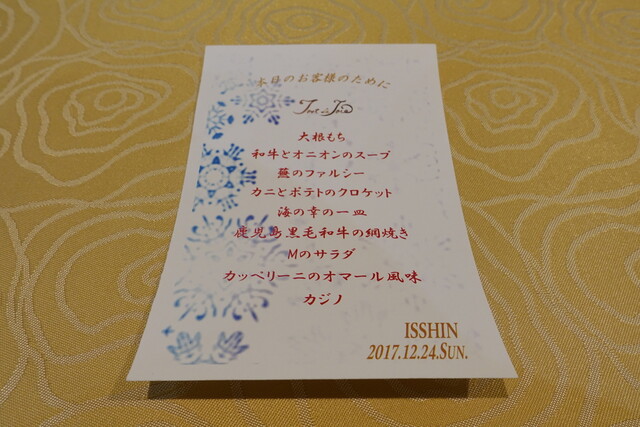 本日のお客様のために
大根もち
和牛とオニオンのスープ
蕪のファルシー
カニとポテトのクロケット
海の幸の一皿
鹿児島黒毛和牛の網焼き
Mのサラダ
カッペリーニのオマール風味
カジノ
ISSHIN
2017.12.24.SUN.